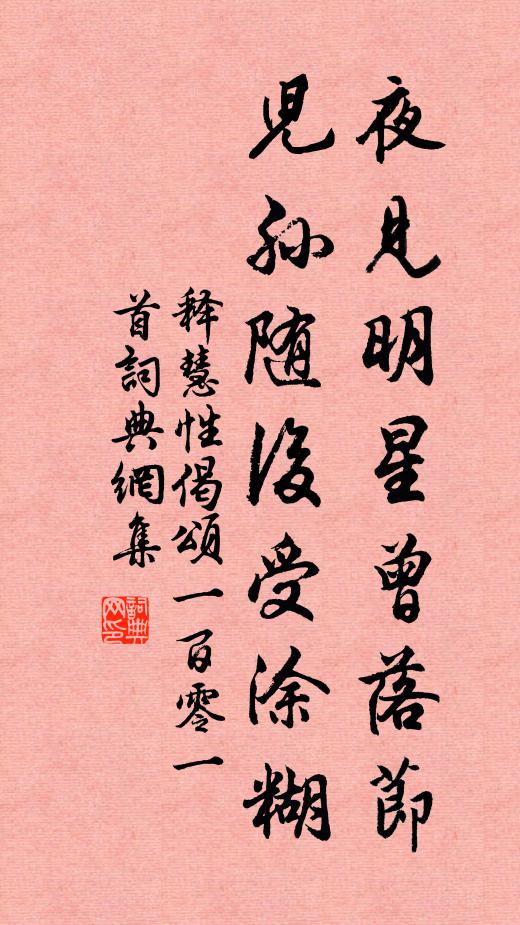 夜見明星曾落節
兒孫随後受涂糊
释慧性偈頌一百零一
首詞典網集
詞典网印